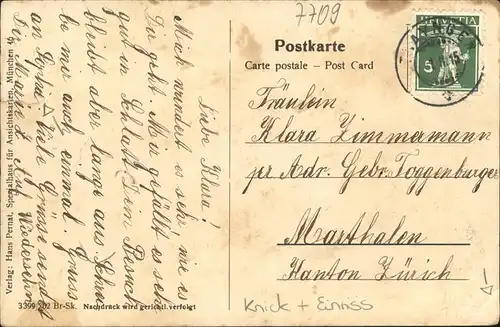 7709
Postkarte
Carte postale – Post Card
HELVETIA
5
Liebe Klara!
Mich wundert es sehr wie es
Dir geht. Mir gefällt es sehr
gut in Schlatt. Dein Besuch
bleibt aber lange aus.
be mir auch einmal. Gruss
an Sophie. Viele Grüsse sendet
Dir Marie Z. Auf Wiedersehn
Fräulein
Klara Zimmermann
per Adr. Gebr. Toggenburger
Marthalen
Kanton Zürich
Knick + Einriss
Verlag: Hans Pernat, Spezialhaus für Ansichtskarten, München 9.
3399 502 Br-Sk. Nachdruck wird gerichtl. verfolgt